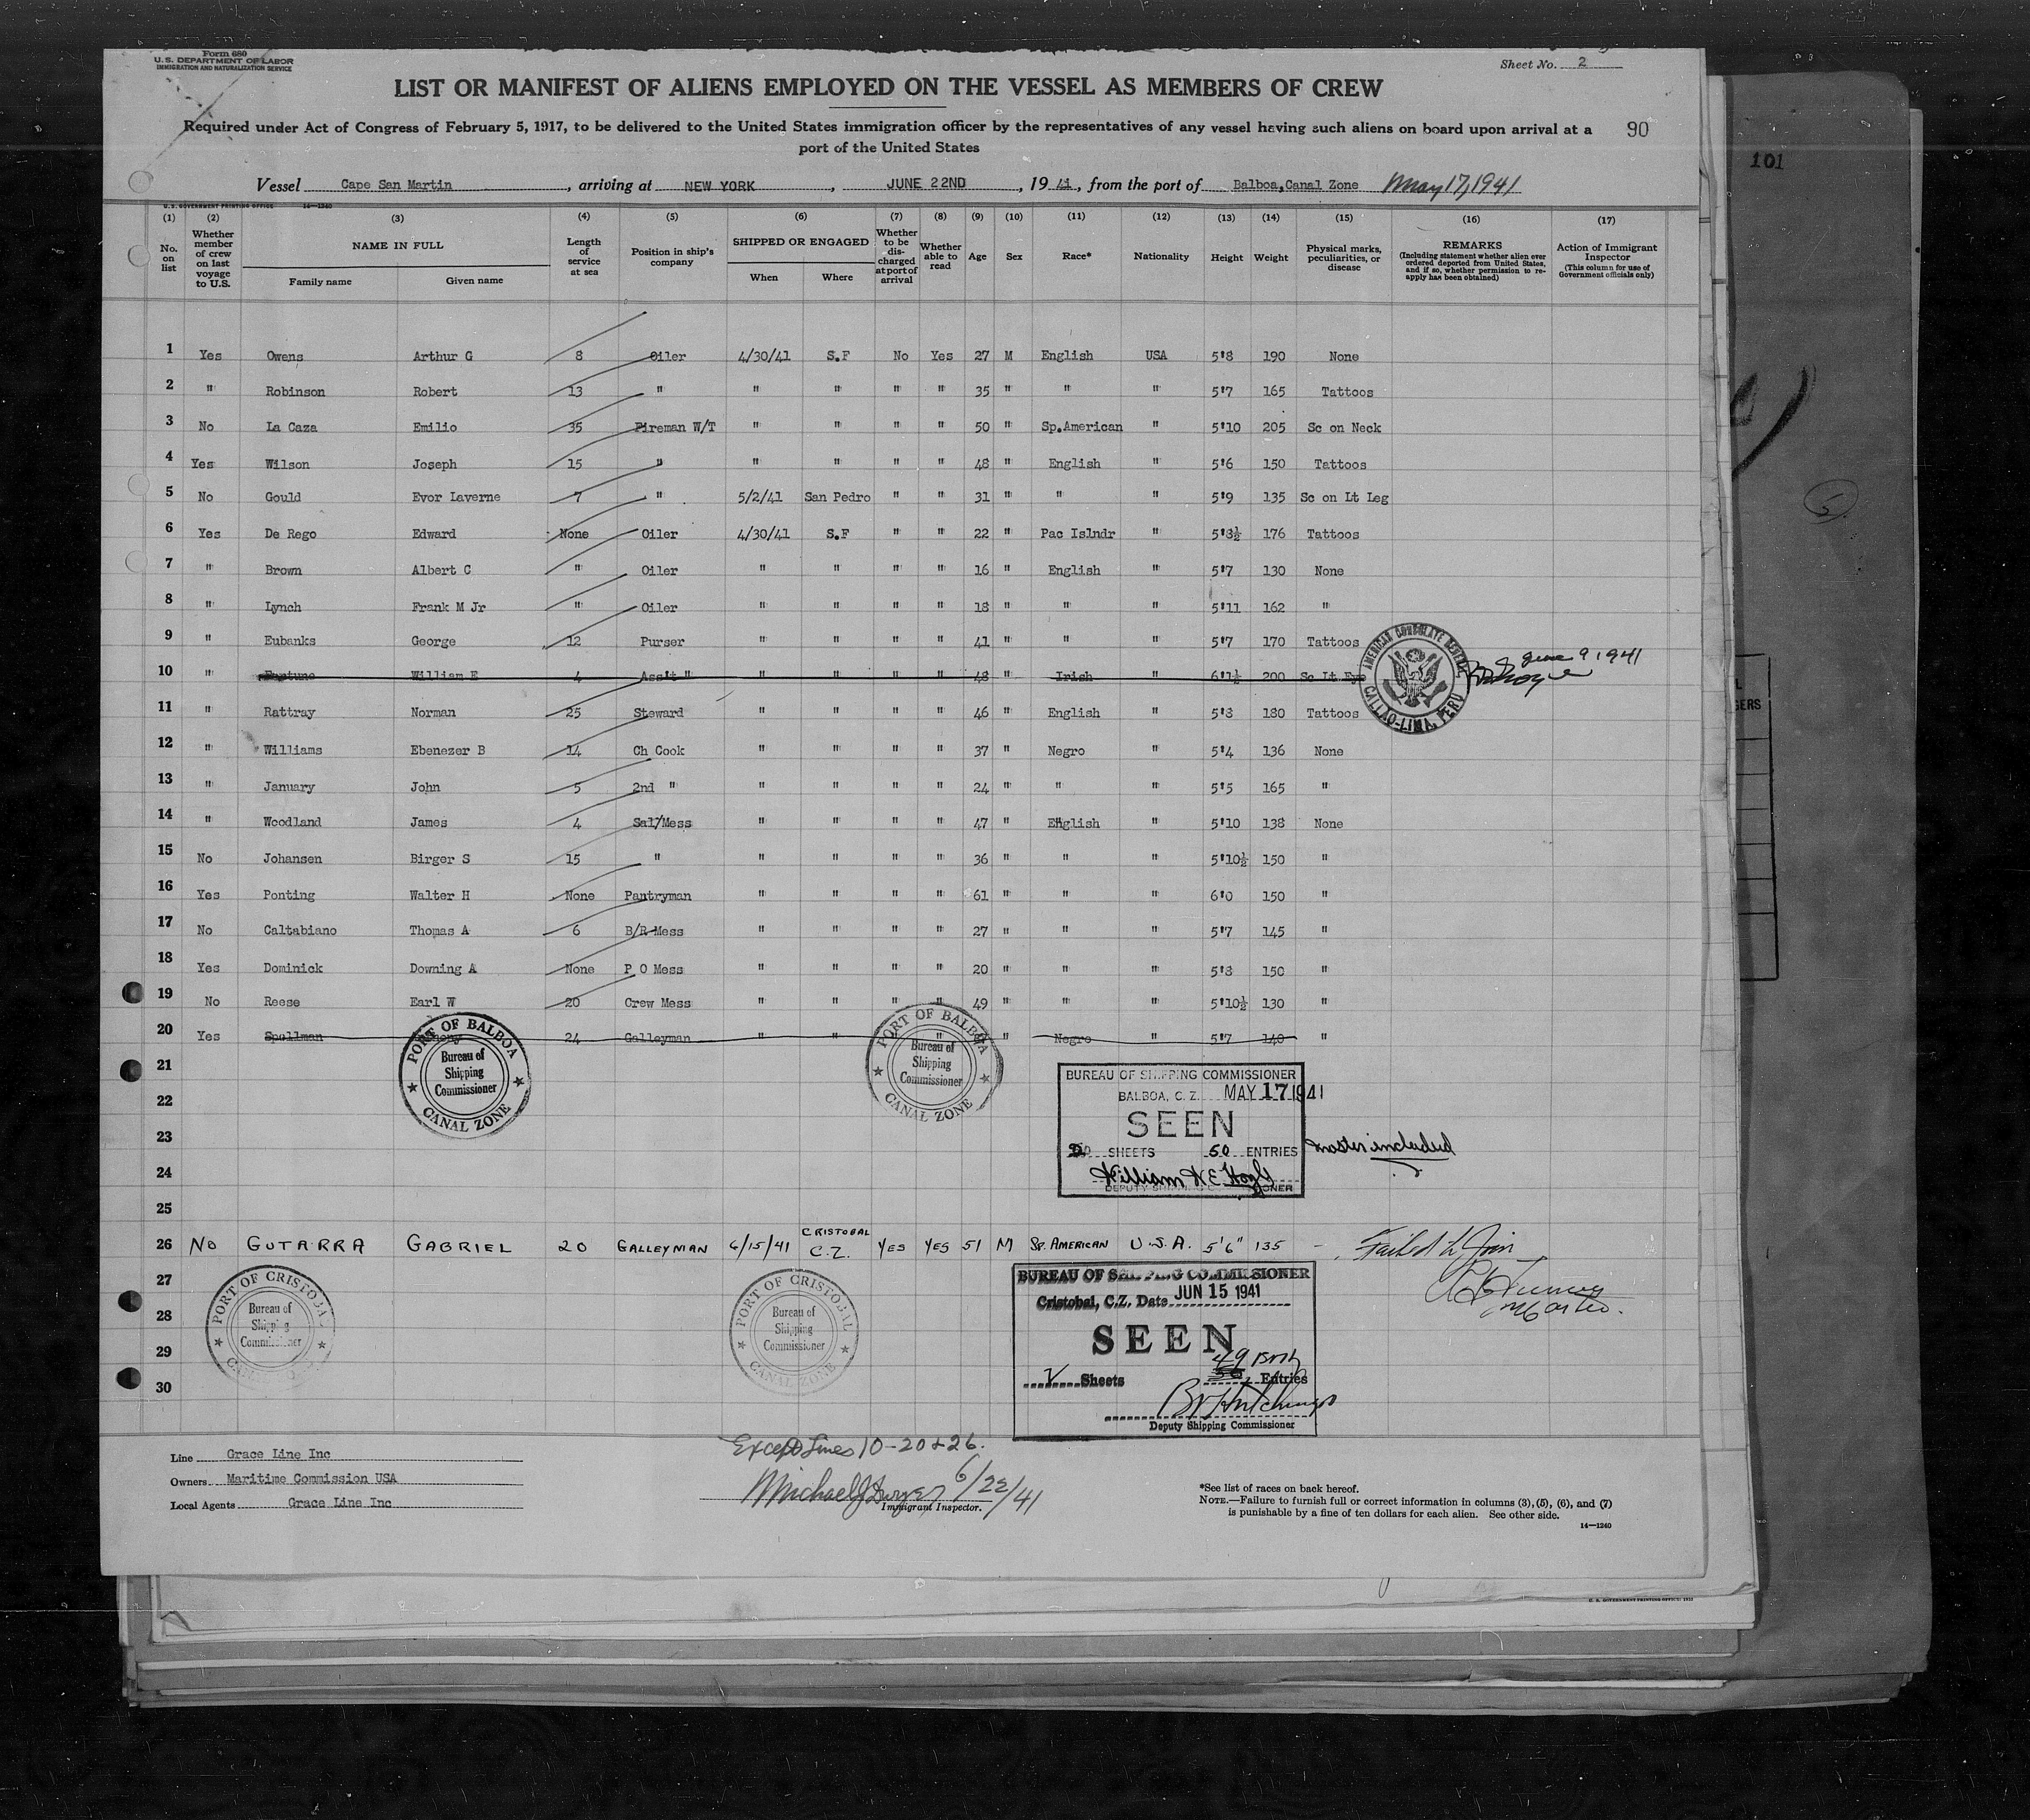 Form 680
U.S. DEPARTMENT OF LABOR
IMMIGRATION AND NATURALIZATION SERVICE
Sheet No. 2
LIST OR MANIFEST OF ALIENS EMPLOYED ON THE VESSEL AS MEMBERS OF CREW
Required under Act of Congress of February 5, 1917, to be delivered to the United States immigration officer by the representatives of any vessel having such aliens on board upon arrival at a
port of the United States
90
101
Vessel Cape San Martin, arriving at NEW YORK, JUNE 22ND, 1941, from the port of Balboa,Canal Zone May 17, 1941
U.S. GOVERNMENT PRINTING OFFICE 14—1240
(1) (2) (3) (4) (5) (6) (7) (8) (9) (10) (11) (12) (13) (14) (15) (16) (17)
No. on list
Whether member of crew on last voyage to U.S.
NAME IN FULL
Family name
Given name
Length of service at sea
Position in ship's company
SHIPPED OR ENGAGED
When
Where
Whether to be discharged at port of arrival
Whether able to read
Age
Sex
Race*
Nationality
Height
Weight
Physical marks, peculiarities, or disease
REMARKS
(Including statement whether alien ever ordered deported from United States, and if so, whether permission to reapply has been obtained)
Action of Immigrant Inspector
(This column for use of Government officials only)
1 Yes Owens Arthur G 8 Oiler 4/30/41 S.F No Yes 27 M English USA 5'8 190 None
2 " Robinson Robert 13 " " " " " 35 " " " 5'7 165 Tattoos
3 No La Caza Emilio 35 Fireman W/T " " " " 50 " Sp.American " 5'10 205 Sc on Neck
4 Yes Wilson Joseph 15 " " " " " 48 " English " 5'6 150 Tattoos
5 No Gould Evor Laverne 7 " 5/2/41 San Pedro " " 31 " " " 5'9 135 Sc on Lt Leg
6 Yes De Rego Edward None Oiler 4/30/41 S.F " " 22 " Pac Islndr " 5'8½ 176 Tattoos
7 " Brown Albert C " Oiler " " " " 16 " English " 5'7 130 None
8 " Lynch Frank M Jr " Oiler " " " " 18 " " " 5'11 162 "
9 " Eubanks George 12 Purser " " " " 41 " " " 5'7 170 Tattoos
10 " Fortune William E 4 Ass't " " " " " 48 " Irish " 6'1½ 200 Sc Lt Eye
AMERICAN CONSULATE GENERAL
CALLAO-LIMA, PERU
June 9, 1941
11 " Rattray Norman 25 Steward " " " " 46 " English " 5'8 180 Tattoos
12 " Williams Ebenezer B 14 Ch Cook " " " " 37 " Negro " 5'4 136 None
13 " January John 5 2nd " " " " " 24 " " " 5'5 165 "
14 " Woodland James 4 Sal/Mess " " " " 47 " English " 5'10 138 None
15 No Johansen Birger S 15 " " " " " 36 " " " 5'10½ 150 "
16 Yes Ponting Walter H None Pantryman " " " " 61 " " " 6'0 150 "
17 No Caltabiano Thomas A 6 B/R Mess " " " " 27 " " " 5'7 145 "
18 Yes Dominick Downing A None P O Mess " " " " 20 " " " 5'8 150 "
19 No Reese Earl W 20 Crew Mess " " " " 49 " " " 5'10½ 130 "
20 Yes Spellman 24 Galleyman " " " " " Negro " 5'7 140 "
21
22
23
24
25
PORT OF BALBOA
Bureau of
Shipping
Commissioner
CANAL ZONE
PORT OF BALBOA
Bureau of
Shipping
Commissioner
CANAL ZONE
BUREAU OF SHIPPING COMMISSIONER
BALBOA, C. Z. MAY 17 1941
SEEN
2 SHEETS 50 ENTRIES
master included
DEPUTY SHIPPING COMMISSIONER
26 No GUTARRA GABRIEL 20 GALLEYMAN 6/15/41 CRISTOBAL C.Z. YES YES 51 M SP. AMERICAN U.S.A. 5'6" 135 - Failed to Join
Master.
27
28
29
30
PORT OF CRISTOBAL
Bureau of
Shipping
Commissioner
CANAL ZONE
PORT OF CRISTOBAL
Bureau of
Shipping
Commissioner
CANAL ZONE
BUREAU OF SHIPPING COMMISSIONER
Cristobal, C.Z. Date JUN 15 1941
SEEN
2 Sheets 49 Entries
Deputy Shipping Commissioner
Line Grace Line Inc
Owners Maritime Commission USA
Local Agents Grace Line Inc
Except Lines 10-20+26.
Michael J Dwyer 6/22/41
Immigrant Inspector.
*See list of races on back hereof.
NOTE.—Failure to furnish full or correct information in columns (3), (5), (6), and (7)
is punishable by a fine of ten dollars for each alien. See other side.
14—1240